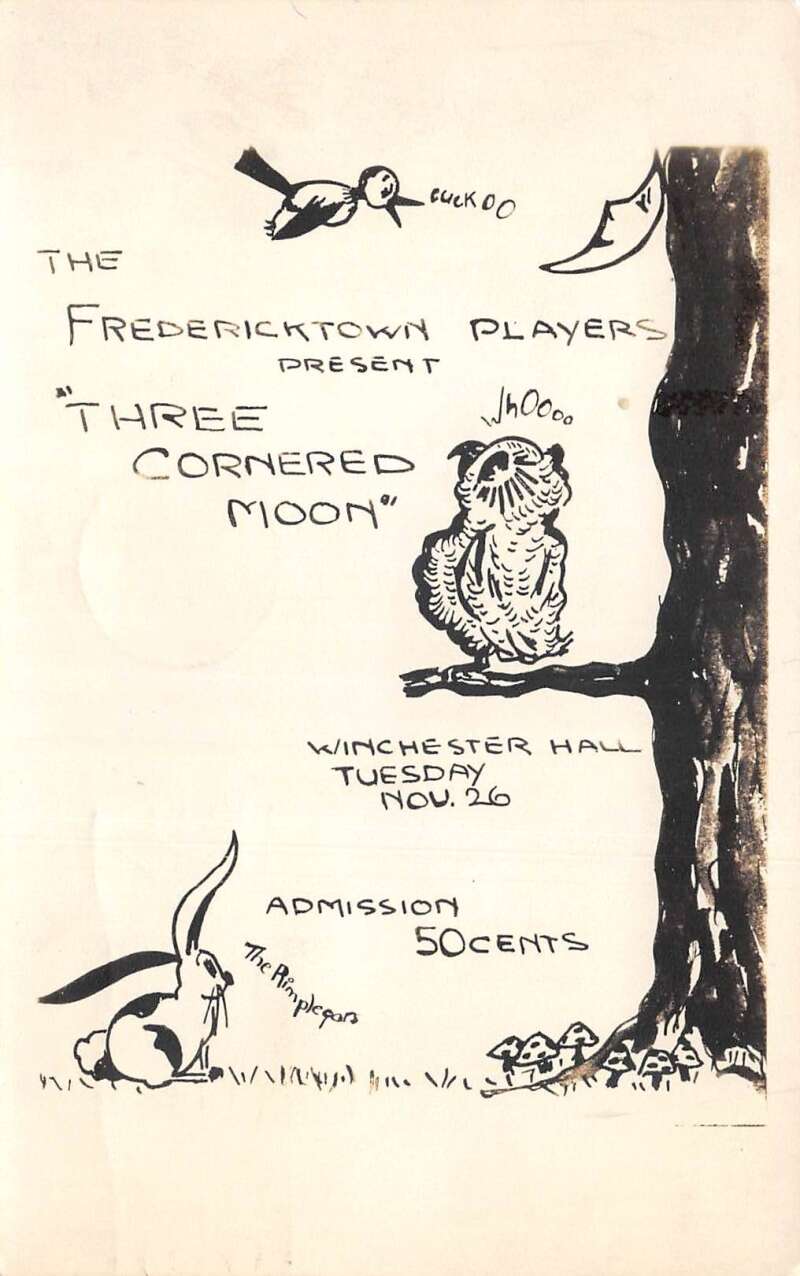 cuckoo
THE
FREDERICKTOWN PLAYERS
PRESENT
"THREE
CORNERED
MOON"
WhOooo
WINCHESTER HALL
TUESDAY
NOV. 26
ADMISSION
50 CENTS
The Rimplegars